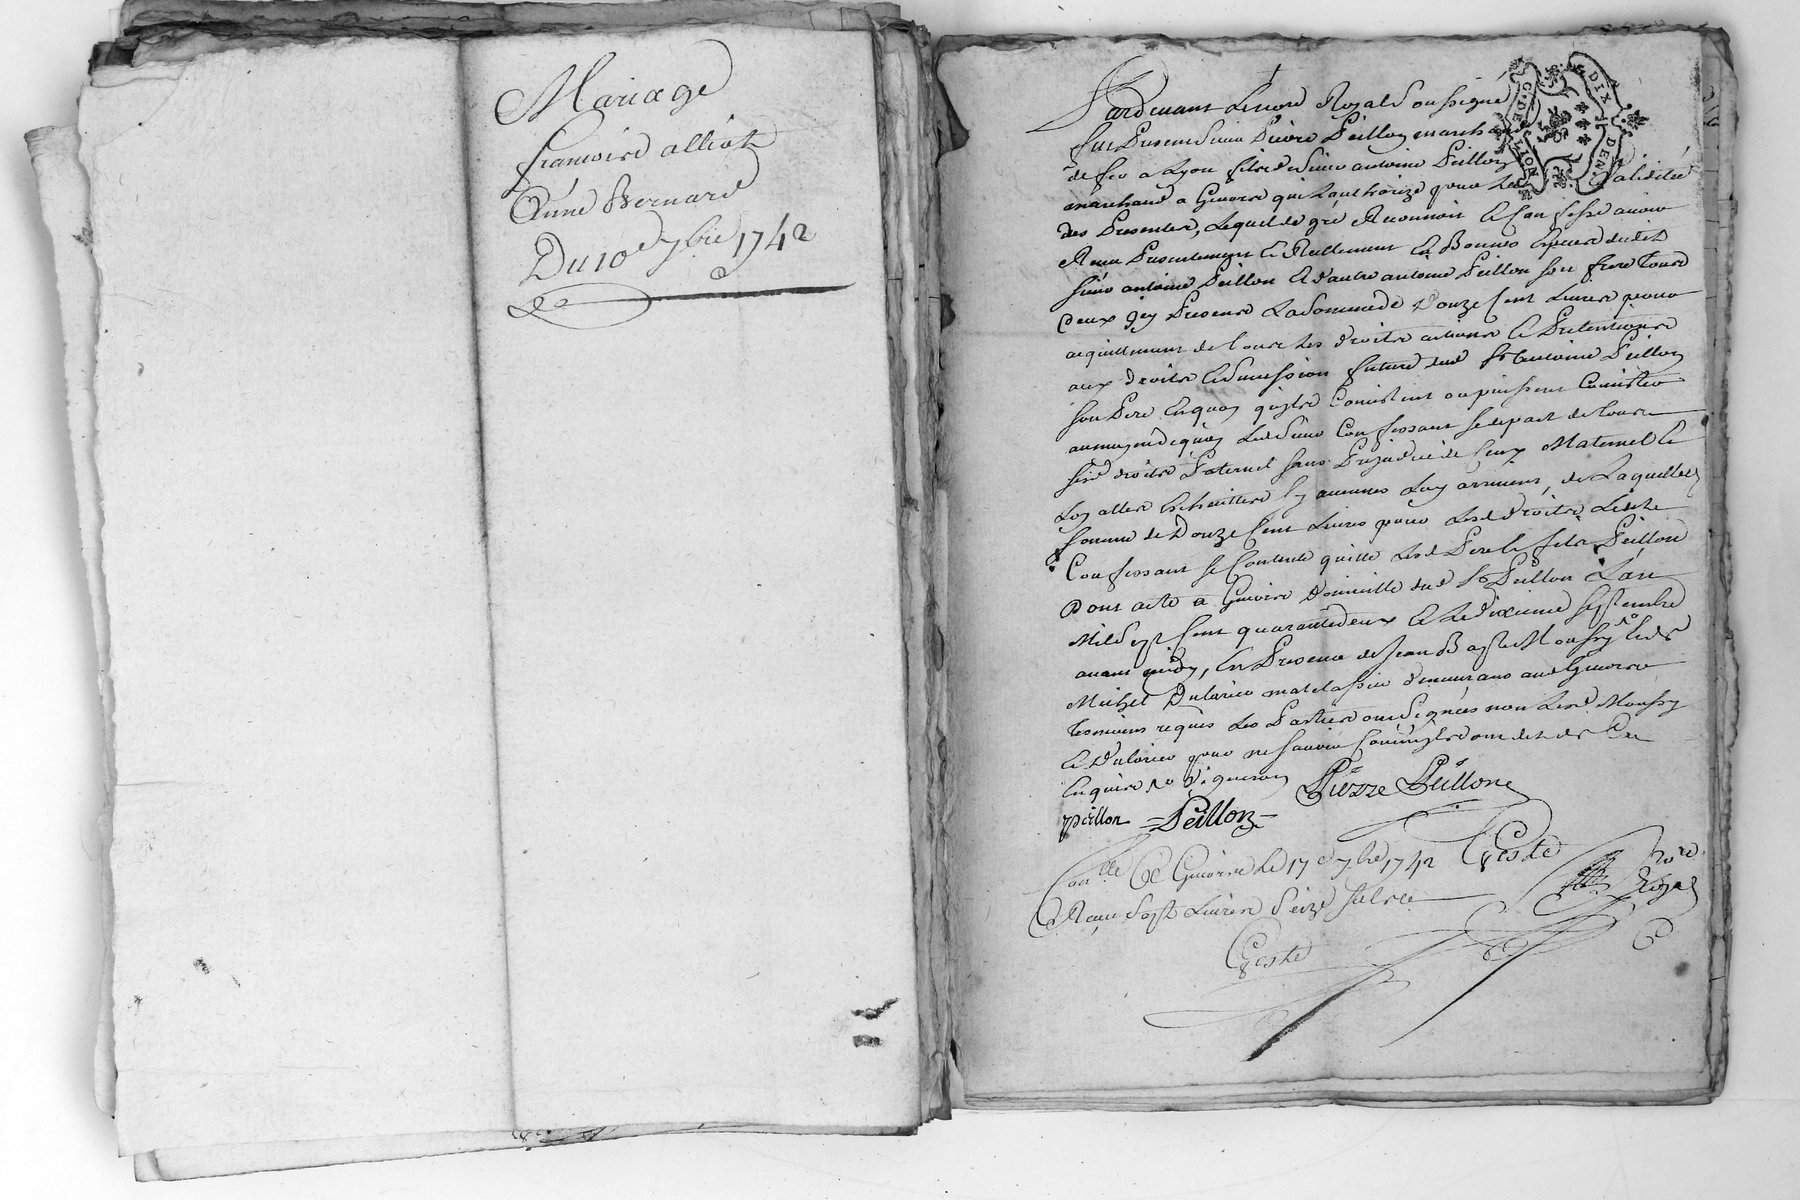 Mariage
francoise alliot
Anne Bernard
Du 10e 7bre 1742
G. DE LYON
DIX DEN.
Pardevant le nore Royal soussigné
fut Present sieur Pierre Peillon marchand
de fer a Lyon fils de sieur antoine Peillon
marchand a Givors qui l'authorize pour la validité
des Presentes, Lequel de gré Reconnoit et confesse avoir
Receu Presentement et Réellement en Bonnes Especes dudit
sieur antoine Peillon et d'autre antoine Peillon son frere tous
deux icy Presens La somme de Douze cent Livres pour
acquittement de tous les droits actions et Pretentions
aux droits et succession future dud sr antoine Peillon
son Pere En quoy qu'ils consistent ou puissent consister
au moyen de quoy led sieur Confessant se depart de tous
sesd droits Paternel sans Prejudice de ceux Maternel et
Loyalles Echeuttes sy aucunes Luy arrivent, de Laquelle
somme de Douze cent Livres pour lesd droits Ledit
Confessant se Contente quitte lesd Pere et fils Peillon
Dont acte a Givors Domicille dud sr Peillon L'an
Mil sept cent quarante deux et le dixieme septembre
avant midy, En Presence de Jean Bapte Moussy et de sr
Michel Dulorier matelassier demeurans aud Givors
temoins requis Les Parties ont signées non lesd Moussy
et Dulorier pour ne sçavoir comm'ils ont dit de ce
Enquis
peillon Peillon Pierre Peillon
Conllé A Givors le 17e 7bre 1742 Geste
Receu sept Livres seize sols
Nore
Royal
Geste